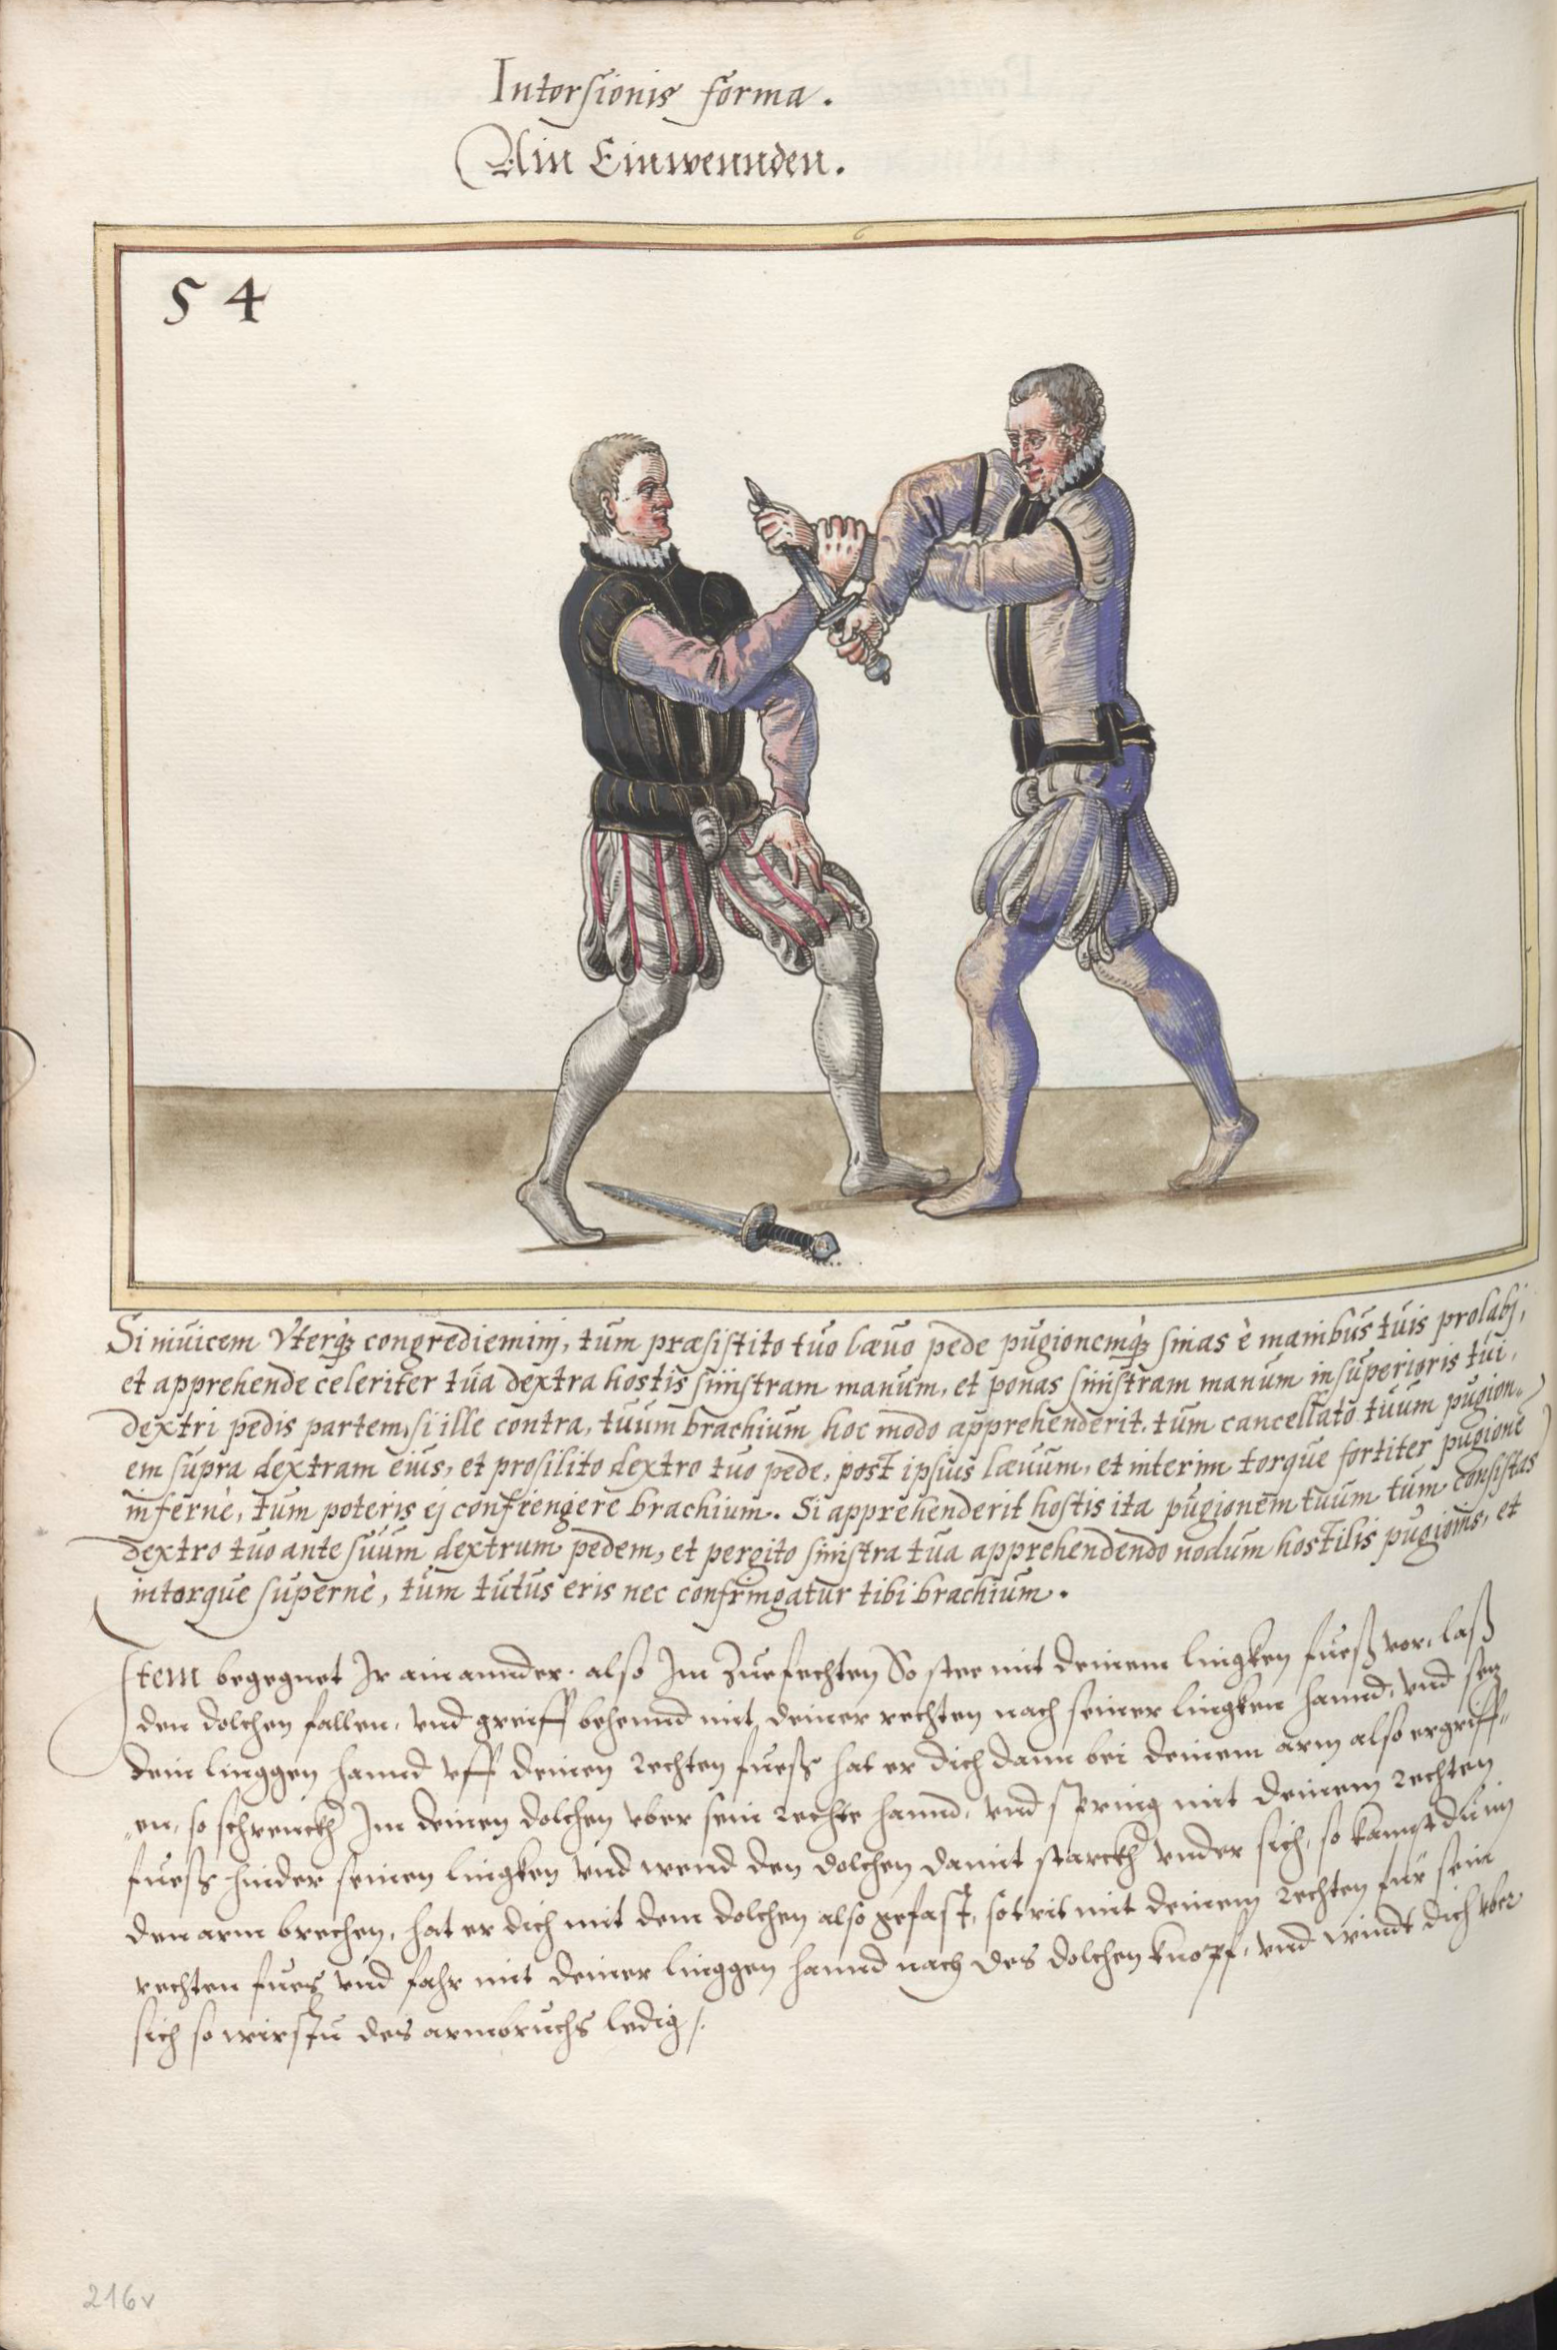 Intorsionis forma.
Ain Einwennden.
54
Si invicem vterqꝫ congrediemini, tum præsistito tuo lævo pede pugionemqꝫ sinas è manibus tuis prolabj,
et apprehende celeriter tua dextra hostis sinistram manum, et ponas sinistram manum in superioris tui,
dextri pedis partem, si ille contra, tuum brachium hoc modo apprehenderit. tum cancellato tuum pugion„
em supra dextram eius, et prosilito dextro tuo pede, post ipsius lævum, et interim torque fortiter pugione
infernè, tum poteris ej confriengere brachium. Si apprehenderit hostis ita pugionem tuum tum consistas
dextro tuo ante suum dextrum pedem, et pergito sinistra tua apprehendendo nodum hostilis pugionis, et
intorque supernè, tum tutus eris nec confringatur tibi brachium.
Item begegnet Ir ainannder. also Im Zuefechten So stee mit deinem lingken fueß vor, laß
den dolchen fallen, vnd greiff behennd mit deiner rechten nach seiner lingken hannd, vnd setz
dein linggen hannd vff deinen rechten fuess hat er dich dann bei deinem arm also ergriff„
„en, so schrenckh Im deinen dolchen vber sein rechte hannd, vnd spring mit deinem rechten
fuess hinder seinen lingken vnd wend den dolchen damit starckh vnder sich, so kanstu im
den arm brechen, hat er dich mit dem dolchen also gefast, so trit mit deinem rechten für sein
rechten fues vnd fahr mit deiner linggen hannd nach des dolchen knopf, vnd windt dich vber
sich so wirstu des armbruchs ledig /.
216v